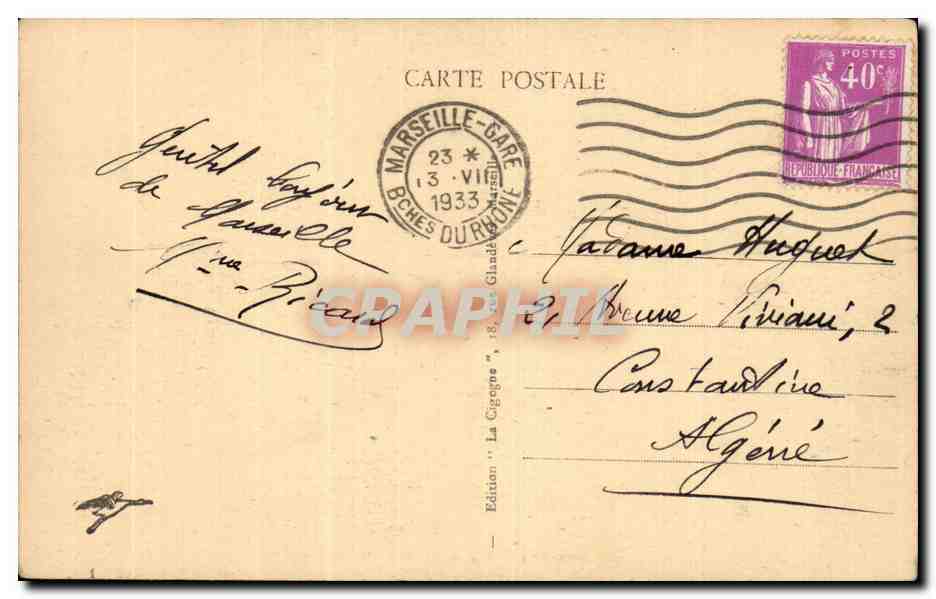 CARTE POSTALE
POSTES
40c
REPUBLIQUE-FRANÇAISE
MARSEILLE-GARE
23 *
13 · VII
1933
BCHES DU RHONE
Gentil
de Marseille
Mme Ricard
Madame Huguet
2, Avenue Viviani, 2
Constantine
Algérie
Edition " La Cigogne ", 18, rue Glandevès Marseille
CPAPHIL